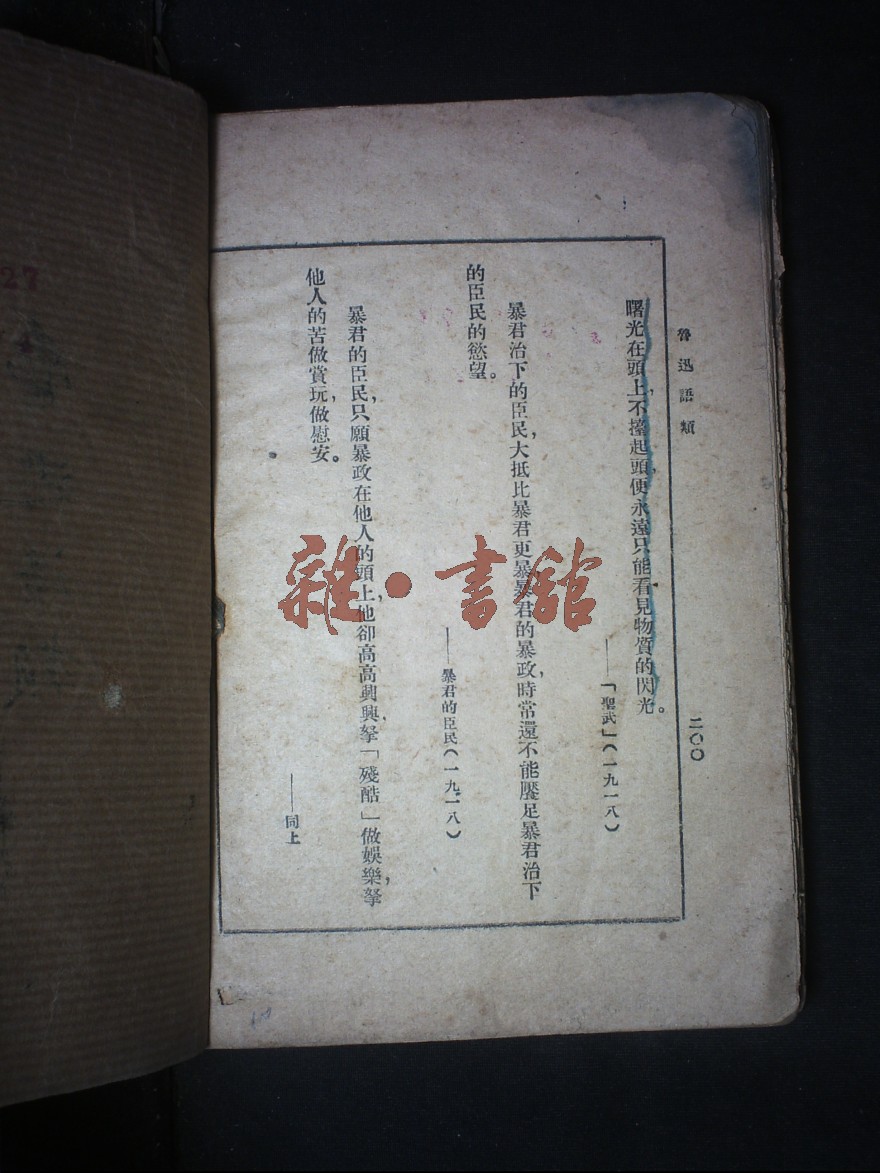 魯迅語類
二〇〇
曙光在頭上,不擡起頭,便永遠只能看見物質的閃光。
——「聖武」(一九一八)
暴君治下的臣民,大抵比暴君更暴暴君的暴政,時常還不能饜足暴君治下
的臣民的慾望。
——暴君的臣民(一九一八)
暴君的臣民,只願暴政在他人的頭上,他卻高高興興,拏「殘酷」做娛樂,拏
他人的苦做賞玩,做慰安。
——同上
雜·書館
27